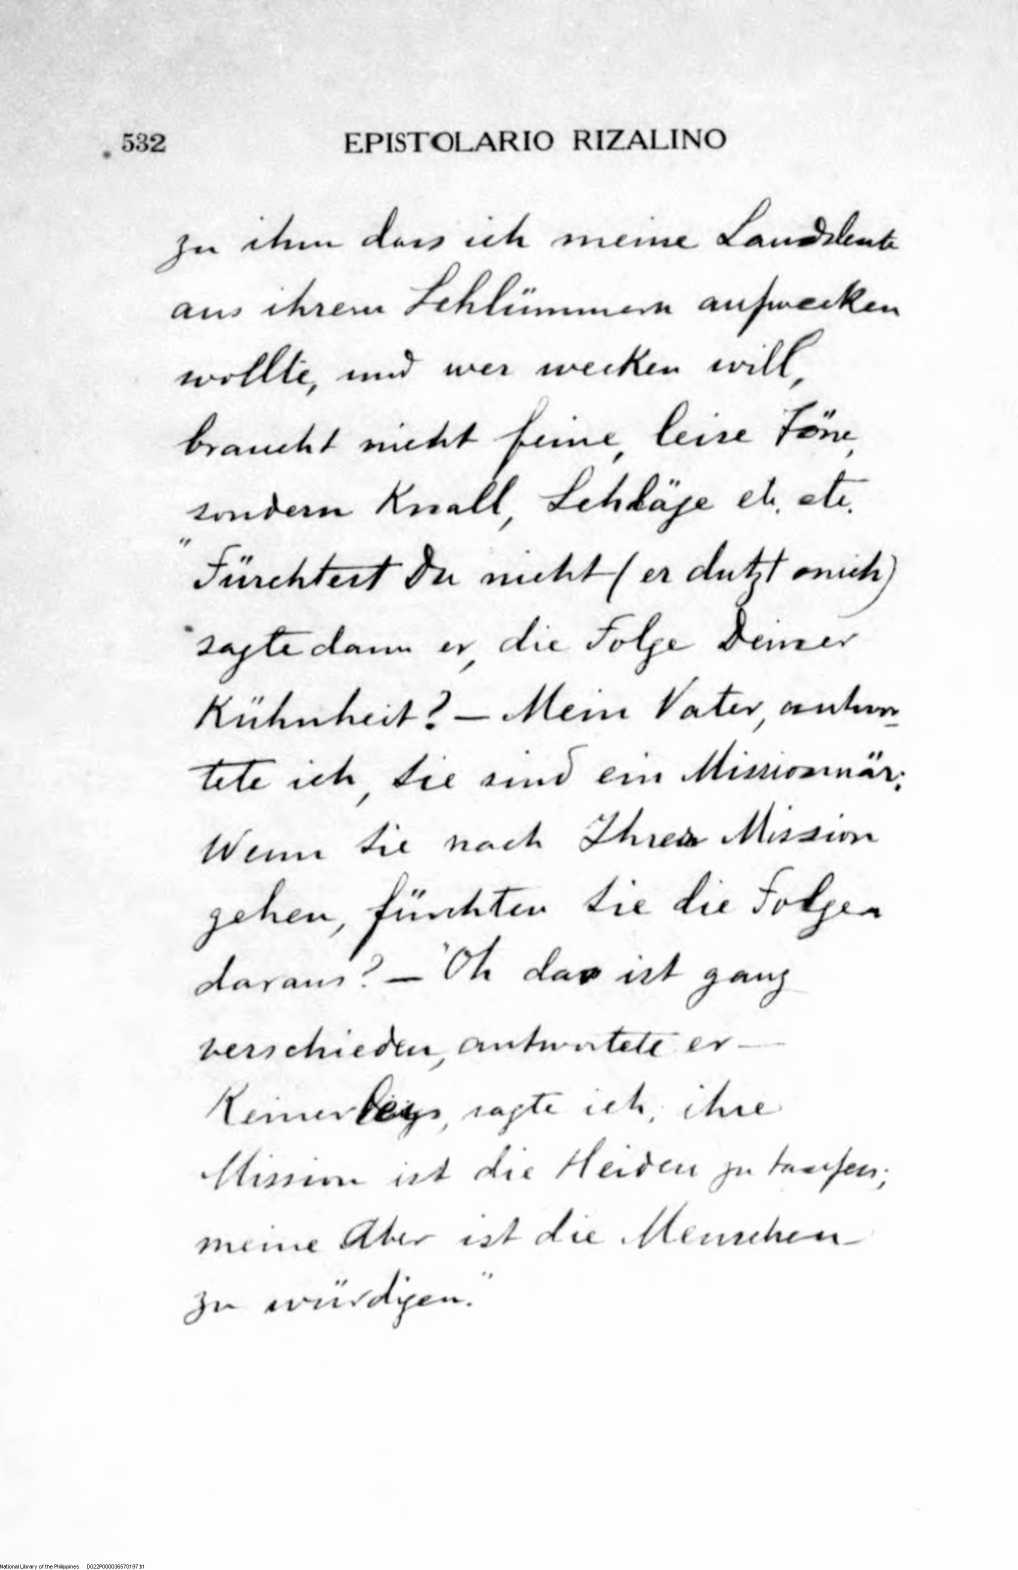 532 EPISTOLARIO RIZALINO
zu ihm dass ich meine Landsleute
aus ihrem Schlümmern aufwecken
wollte, und wer wecken will,
braucht nicht feine, leise Töne,
sondern Knall, Schläge etc. etc.
"Fürchtest Du nicht (er dutzt mich)
sagte dann er, die Folge Deiner
Kühnheit? — Mein Vater, antwor-
tete ich, Sie sind ein Missionnär;
Wenn Sie nach Ihrer Mission
gehen, fürchten Sie die Folgen
daraus? — "Oh das ist ganz
verschieden, antwortete er —
Keinerlei, sagte ich, ihre
Mission ist die Heiden zu taufen;
meine Aber ist die Menschen
zu würdigen."
National Library of the Philippines